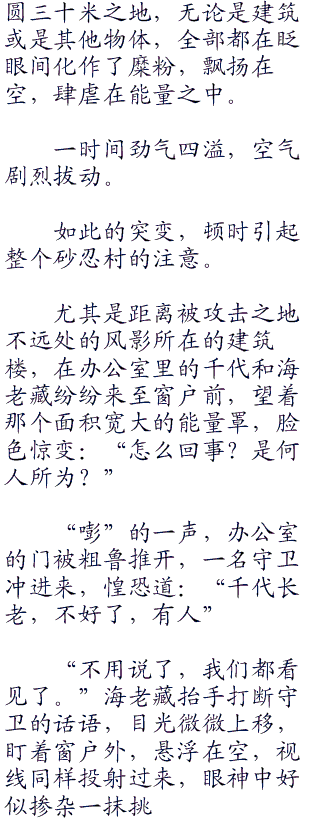 圆三十米之地，无论是建筑
或是其他物体，全部都在眨
眼间化作了糜粉，飘扬在
空，肆虐在能量之中。
一时间劲气四溢，空气
剧烈拔动。
如此的突变，顿时引起
整个砂忍村的注意。
尤其是距离被攻击之地
不远处的风影所在的建筑
楼，在办公室里的千代和海
老藏纷纷来至窗户前，望着
那个面积宽大的能量罩，脸
色惊变：“怎么回事？是何
人所为？”
“嘭”的一声，办公室
的门被粗鲁推开，一名守卫
冲进来，惶恐道：“千代长
老，不好了，有人”
“不用说了，我们都看
见了。”海老藏抬手打断守
卫的话语，目光微微上移，
盯着窗户外，悬浮在空，视
线同样投射过来，眼神中好
似掺杂一抹挑